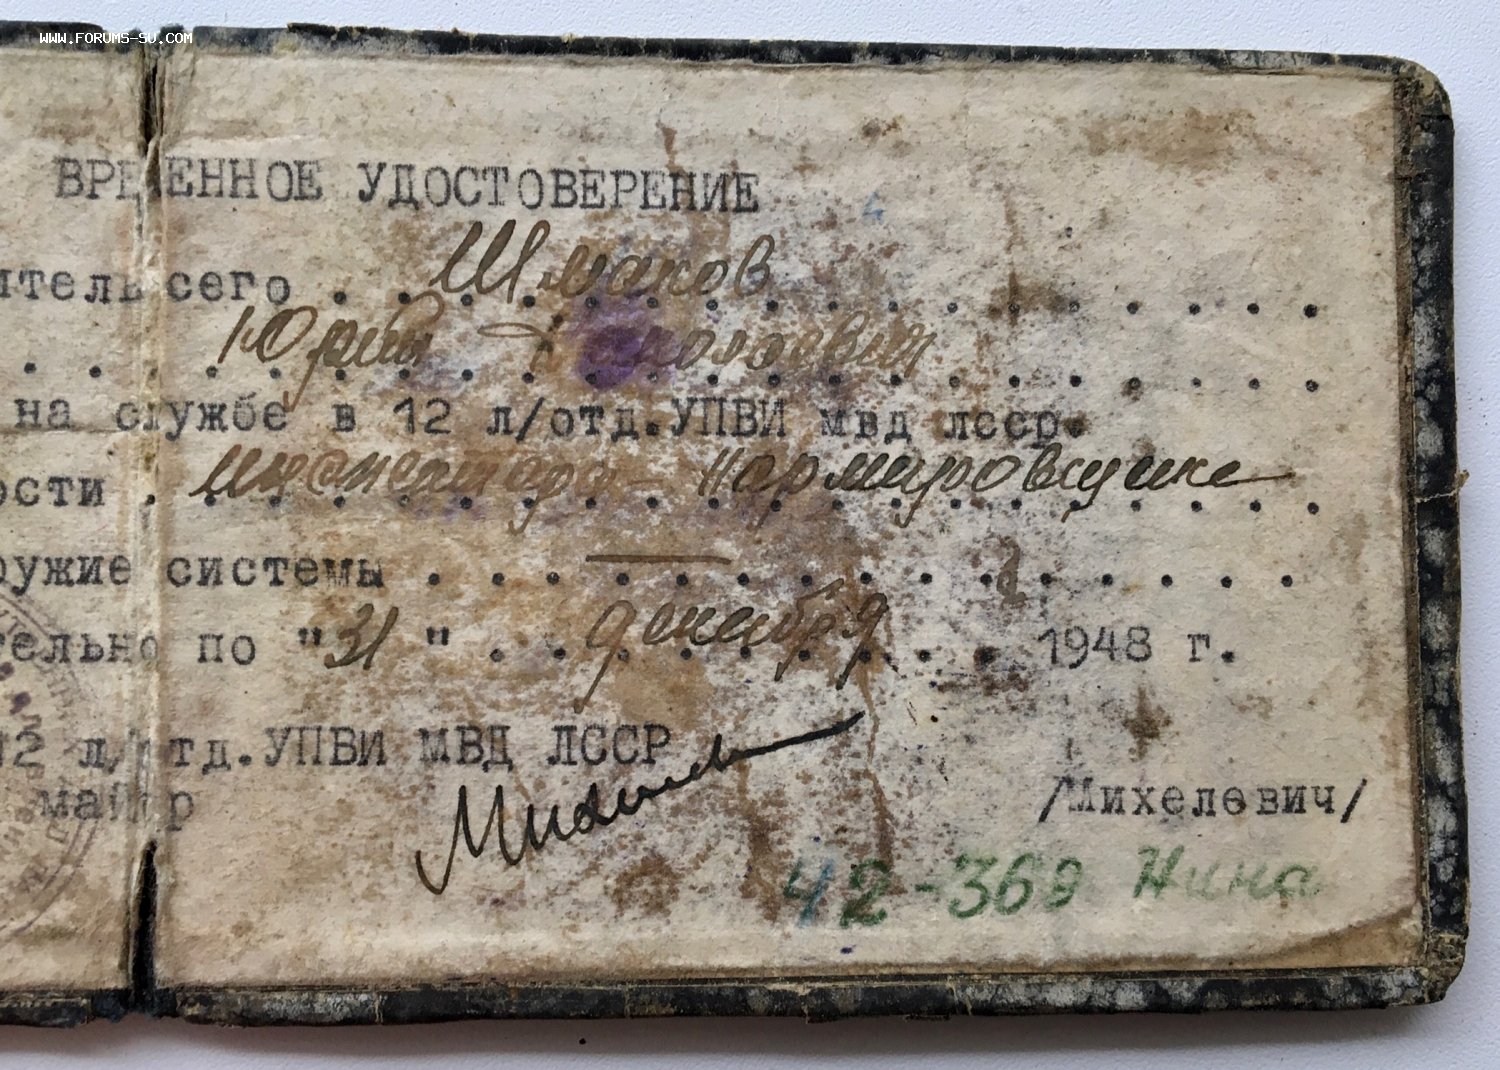 WWW.FORUMS-SU.COM
ВРЕМЕННОЕ УДОСТОВЕРЕНИЕ
итель сего . Шмаков
Юрий
на службе в 12 л/отд.УПВИ МВД ЛССР.
ости . инженера-нормировщика
ружие системы —
тельно по "31" декабря 1948 г.
12 л/отд.УПВИ МВД ЛССР
майор
/Михелевич/
42-369 Нина